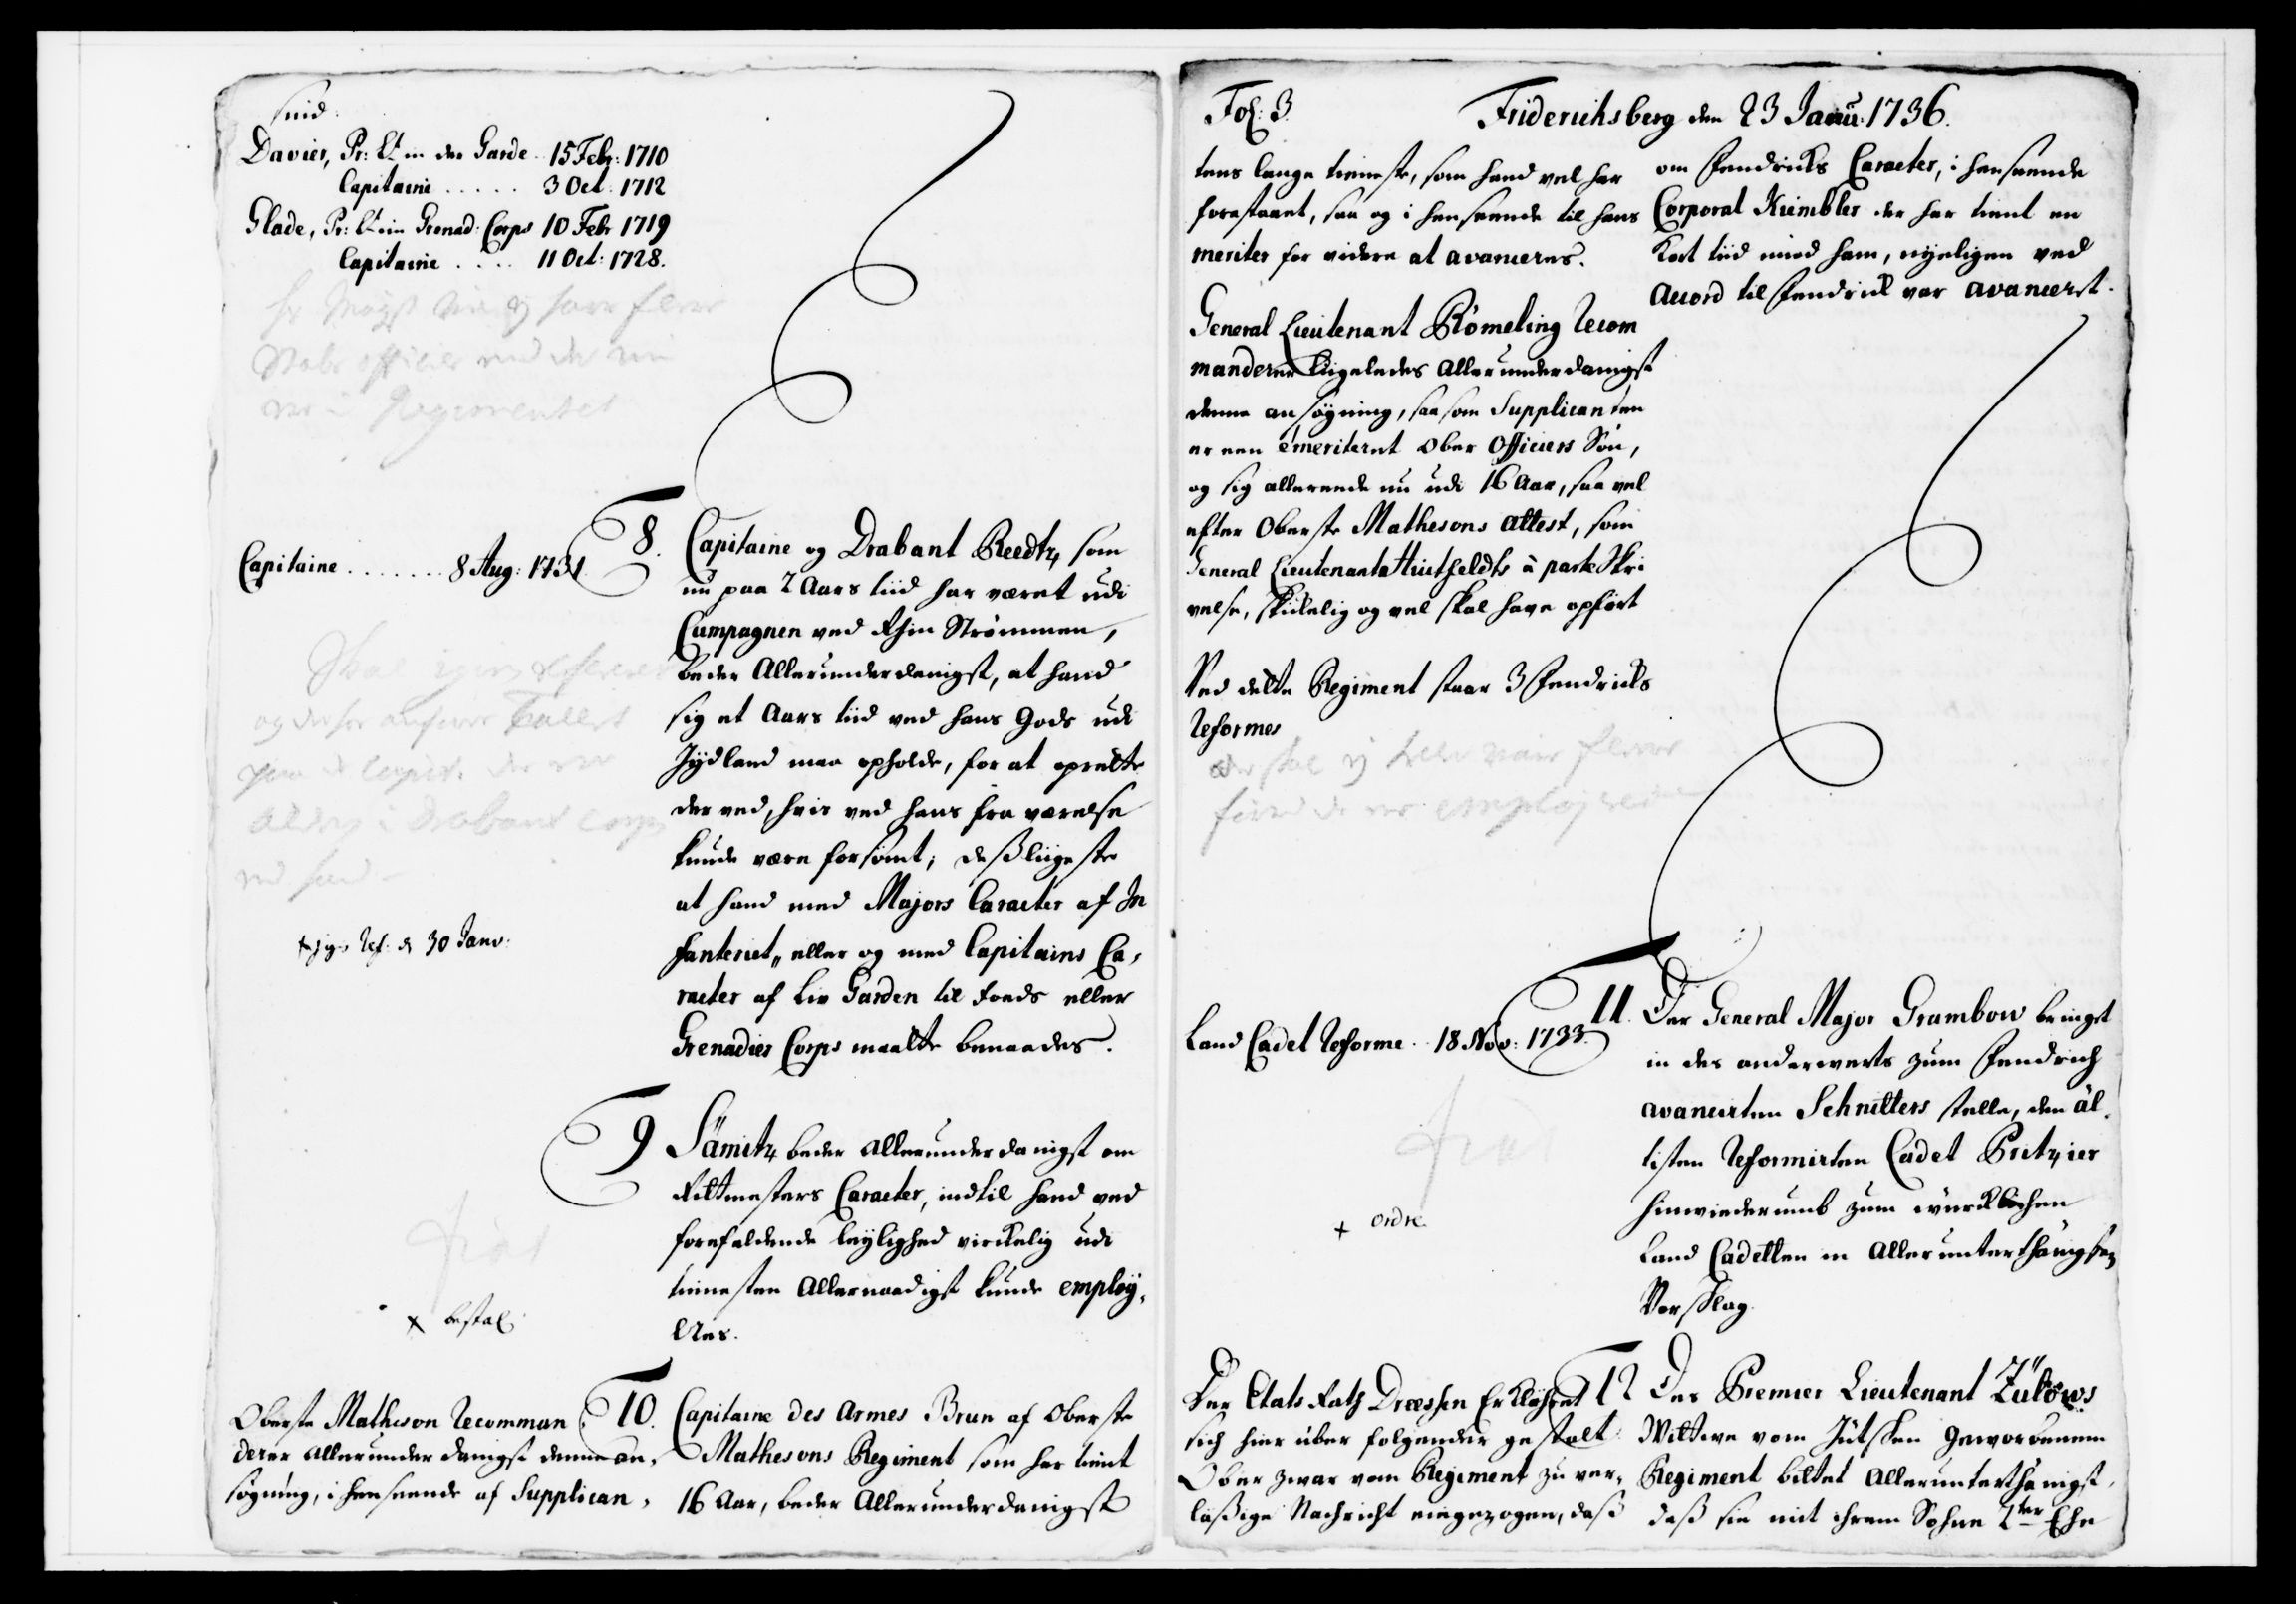 sind:
Davier, Pr: Lt in der Garde 15 Febr: 1710
Capitaine ..... 3 Oct: 1712
Glade, Pr: Lt im Grenad: Corps 10 Febr 1719
Capitaine .... 11 Oct: 1728.
officier
Regimentet
Capitaine ....... 8 Aug: 1731.
og derfor
Drabant Corps
Ref: d 30 Janv:
8. Capitaine og Drabant Reedtz, som
nu paa 2 Aars tiid har været udi
Campagnen ved Rhin Strömmen,
beder Allerunderdanigst, at hand
sig et Aars tiid ved hans Gods udi
Jydland maa opholde, for at oprette
der ved, hvis ved hans fra værelse
kunde være forsömt; desliigeste
at hand med Majors Caracter af In
fanteriet, eller og med Capitains Ca,
racter af Liv Garden til Foeds eller
Grenadier Corps maatte benaades.
9 Sämitz beder allerunderdanigst om
Ritmesters Caracter, indtil hand ved
forefaldende leylighed virckelig udi
tienesten Allernaadigst kunde employ,
eres.
+ bestal
Oberste Matheson recomman
derer allerunderdanigst denne an,
søgning, i henseende af Supplican,
10. Capitaine des Armes Brun af Oberste
Mathesons Regiment som har tient
16 Aar, beder Allerunderdanigst
Fol: 3. Friderichsberg den 23 Janu: 1736.
tens lange tieneste, som hand vel har
forestaaet, saa og i henseende til hans
meriter for videre at avanceres.
General Lieutenant Römeling recom
manderer liigeledes allerunderdanigst
denne ansögning, saa som Supplicanten
er een emeriteret Ober Officiers Sön,
og sig allerede nu udi 16 Aar, saa vel
efter Oberste Mathesons attest, som
General Lieutenant Huitfeldts à parte Skri
velse, skickelig og vel skal have opfört
Ved dette Regiment staar 3 Fendricks
reformes
der skal ej
om Fendricks Caracter, i henseende
Corporal Kümbler der har tient en
kort tiid med ham, nyeligen ved
Accord til Fendrick var avanceret.
Land Cadet reforme .. 18 Nov: 1733.
+ ordre.
11. Der General Major Grambow bringet
in des anderwerts zum Fendrich
avancirten Schnitters stelle, den äl,
tisten reformirten Cadet Pritzier
hinwiederumb zum würcklichen
Land Cadetten in Allerunterthänigsten
Vorschlag.
Der Etats Rath Dreeshen Erklähret
sich hier über folgender gestalt:
Ober zwar vom Regiment zu ver,
läßige Nachricht eingezogen, daß
12 Des Premier Lieutenant Zülows
Wittwe vom Jütschen Geworbenen
Regiment bittet Allerunterthänigst,
daß sie mit ihrem Sohne 2ter Ehe